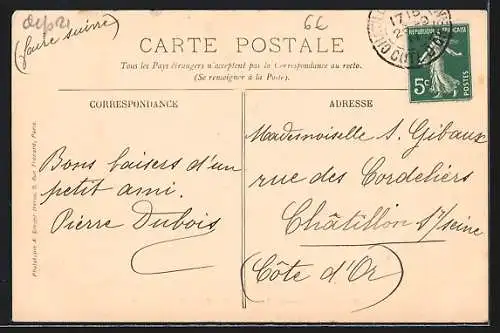 6€
(faire suivre)
CARTE POSTALE
Tous les Pays étrangers n'acceptent pas la Correspondance au recto.
(Se renseigner à la Poste).
REPUBLIQUE FRANÇAISE
5c
POSTES
CORRESPONDANCE
ADRESSE
Bons baisers d'un
petit ami.
Pierre Dubois
Mademoiselle S. Gibaux
rue des Cordeliers
Châtillon s/seine
(Côte d'Or)